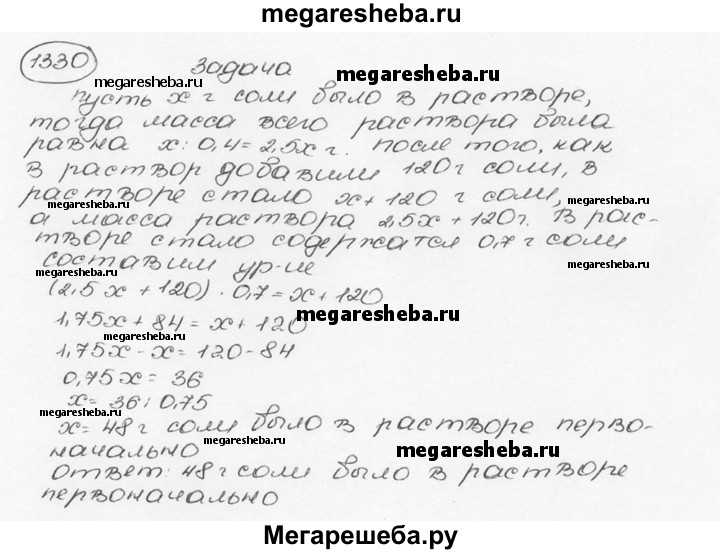 megaresheba.ru
1330 задача megaresheba.ru
megaresheba.ru
пусть x г соли было в растворе,
тогда масса всего раствора была
равна x : 0,4 = 2,5x г. после того, как
в раствор добавили 120 г соли, в
растворе стало x + 120 г соли,
megaresheba.ru megaresheba.ru
а масса раствора 2,5x + 120 г. В рас-
творе стало содержатся 0,7 г соли
составим ур-ие megaresheba.ru
megaresheba.ru
(2,5x + 120) · 0,7 = x + 120
1,75x + 84 = x + 120 megaresheba.ru
megaresheba.ru
1,75x - x = 120 - 84
0,75x = 36
x = 36 : 0,75
megaresheba.ru megaresheba.ru
x = 48 г соли было в растворе перво-
начально megaresheba.ru
Ответ: 48 г соли было в растворе
первоначально
Мегарешеба.ру